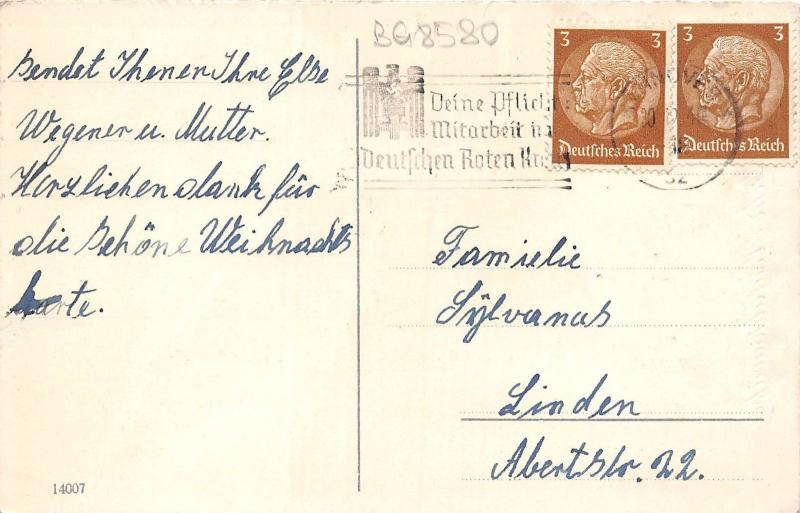 BG8580
sendet Ihenen Ihre Else
Wegener u. Mutter.
Herzlichen dank für
die schöne Weihnachts
karte.
Deine Pflicht:
Mitarbeit im
Deutschen Roten Kreuz
3
Deutsches Reich
3
Deutsches Reich
Familie
Sylvanus
Linden
Abertstr. 22.
14007